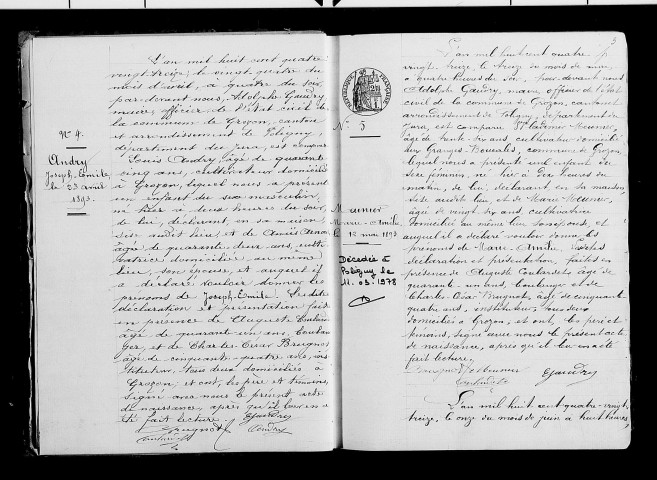 L'an mil huit cent quatre
vingt treize, le vingt quatre du
mois d'avril, à quatre du soir
par devant nous, Adolphe Gaudry,
maire, officier de l'état civil de
la commune de Grozon, canton
et arrondissement de Poligny,
département du Jura, est comparu
Louis Andry, âgé de quarante
cinq ans, cultivateur domicilié
à Grozon, lequel nous a présenté
un enfant du sexe masculin,
né hier à heures du soir,
de lui, déclarant, en sa maison
sise audit lieu et de
âgée de quarante deux ans, culti-
vatrice domiciliée au même
lieu, son épouse, et auquel il
a déclaré vouloir donner les
prénoms de Joseph-Emile. Lesdites
déclaration et présentation faites
en présence de Auguste Coulardet
âgé de quarante un ans, boulan-
ger et de Charles César Brugnot
âgé de cinquante quatre ans, ins-
tituteur, tous deux domiciliés à
Grozon; et ont, les père et témoins,
signé avec nous le présent acte
de naissance, après qu'il leur en a
été fait lecture.
Brugnot Gaudry
N° 4.
Andry
Joseph, Emile
le 23 avril
1893.
N° 5
Meunier
Marie-Amélie
12 mai 1893
Décédée à
Poligny le
11.03.1978
5
L'an mil huit cent quatre
vingt treize le treize du mois de mai,
à quatre heures du soir, par devant nous
Adolphe Gaudry, maire, officier de l'état
civil de la commune de Grozon, canton et
arrondissement de Poligny, département du
Jura, est comparu Meunier,
âgé de trente six ans, cultivateur domicilié
aux Granges , commune de Grozon,
lequel nous a présenté une enfant du
sexe féminin, née hier à dix heures du
matin, de lui, déclarant en sa maison,
sise audit lieu, et de Marie Meunier,
âgée de vingt six ans, cultivatrice
domiciliée au même lieu son épouse, et
auquel il a déclaré vouloir donner les
prénoms de Marie-Amélie. Lesdites
déclaration et présentation, faites en
présence de Auguste Coulardet, âgé de
quarante-un ans, boulanger et de
Charles-César Brugnot, âgé de cinquante
quatre ans, instituteur, tous deux
domiciliés à Grozon, et ont, les père et
témoins, signé avec nous le présent acte
de naissance, après qu'il leur en a été
fait lecture.
Meunier Gaudry
L'an mil huit cent quatre-vingt
treize, le onze du mois de juin à huit heures,